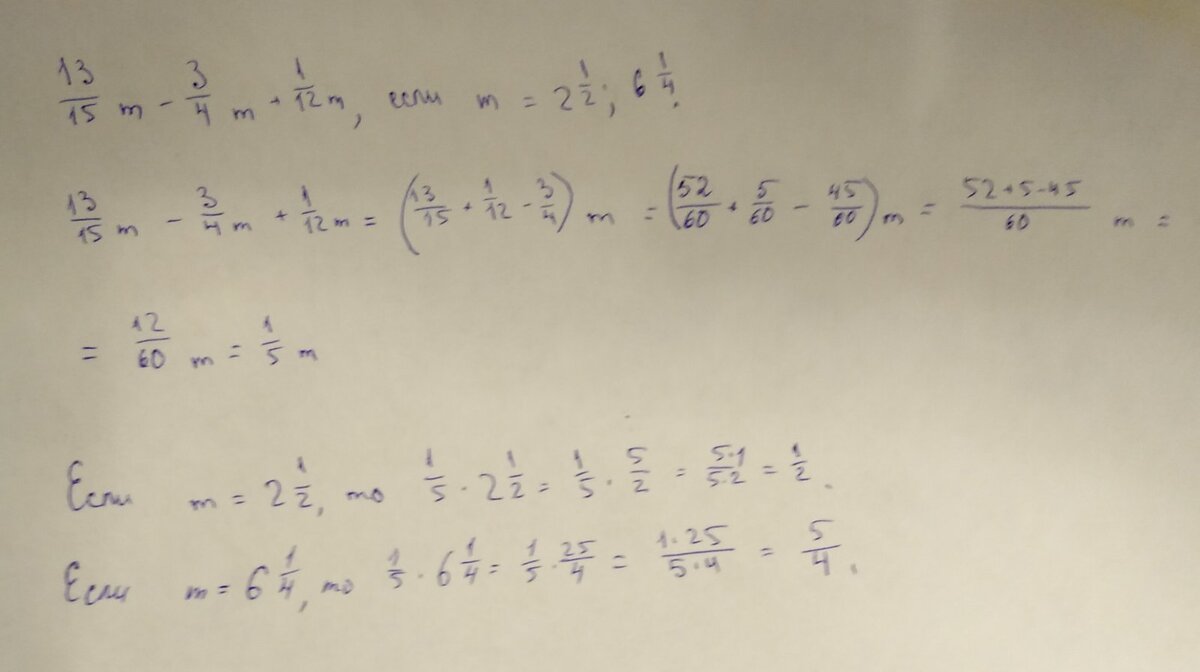 13/15 m - 3/4 m + 1/12 m, если m = 2 1/2; 6 1/4.
13/15 m - 3/4 m + 1/12 m = (13/15 + 1/12 - 3/4) m = (52/60 + 5/60 - 45/60) m = (52+5-45)/60 m =
= 12/60 m = 1/5 m
Если m = 2 1/2, то 1/5 · 2 1/2 = 1/5 · 5/2 = 5·1/5·2 = 1/2.
Если m = 6 1/4, то 1/5 · 6 1/4 = 1/5 · 25/4 = 1·25/5·4 = 5/4.